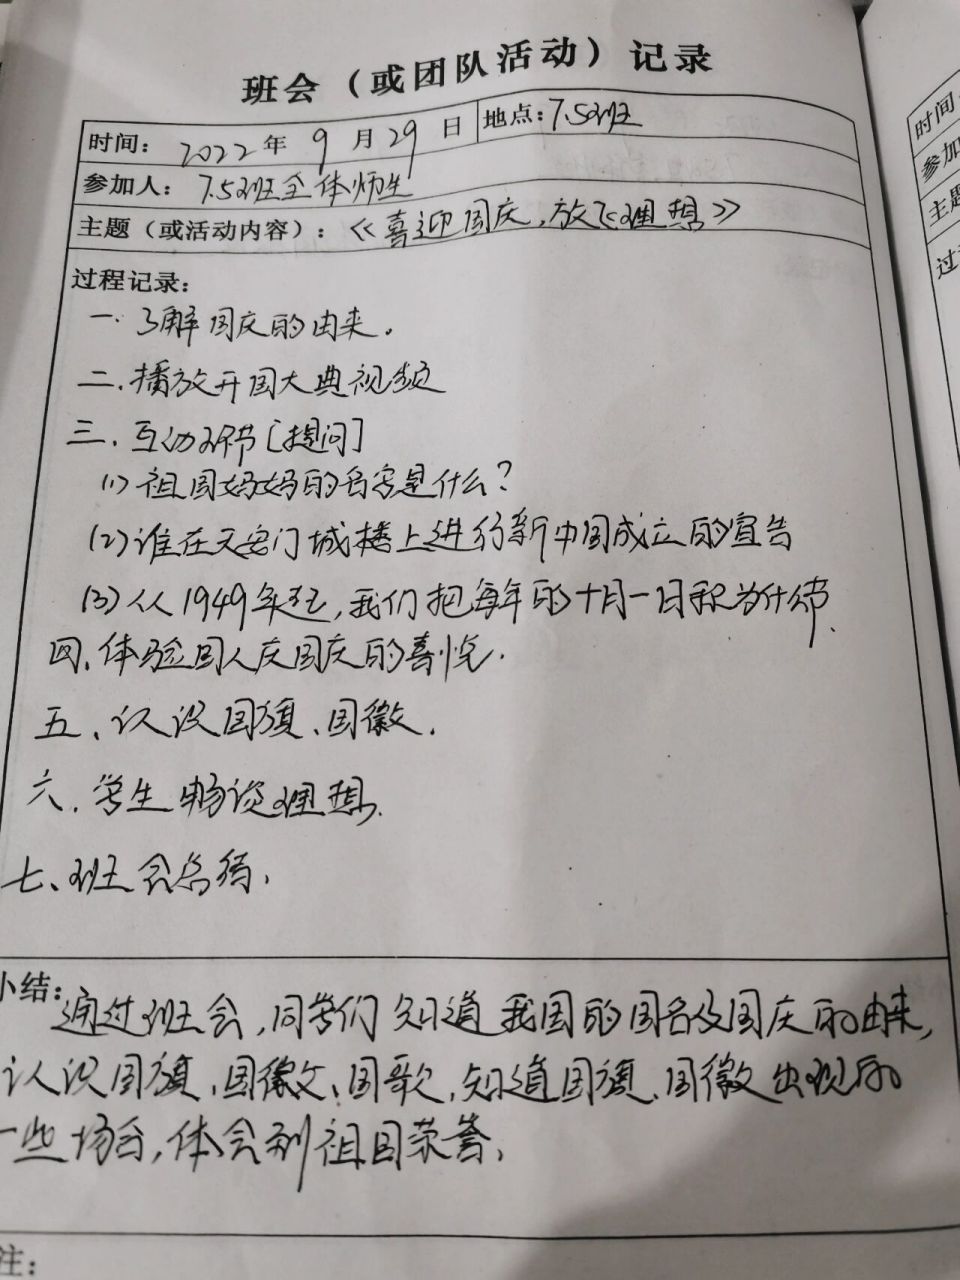 班会（或团队活动）记录
时间： 2022 年 9 月 29 日 地点：7.5班
参加人： 7.5班全体师生
主题（或活动内容）：《喜迎国庆，放飞理想》
过程记录：
一. 了解国庆的由来.
二. 播放开国大典视频
三. 互动环节［提问］
(1) 祖国妈妈的名字是什么？
(2) 谁在天安门城楼上进行新中国成立的宣告
(3) 从1949年起，我们把每年的十月一日称为什么节.
四、体验国人庆国庆的喜悦.
五、认识国旗、国徽.
六. 学生畅谈理想.
七、班会总结.
小结：通过班会，同学们知道我国的国名及国庆的由来，
认识国旗、国徽、国歌，知道国旗、国徽出现的
一些场合，体会到祖国荣誉.
注：
时间
参加
主题
过